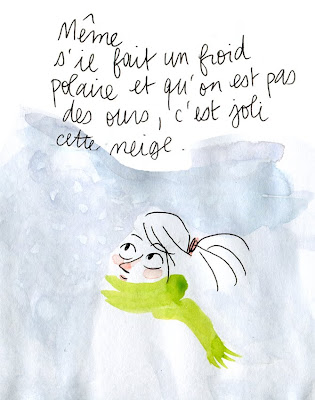 Même
s'il fait un froid
polaire et qu'on est pas
des ours, c'est joli
cette neige.